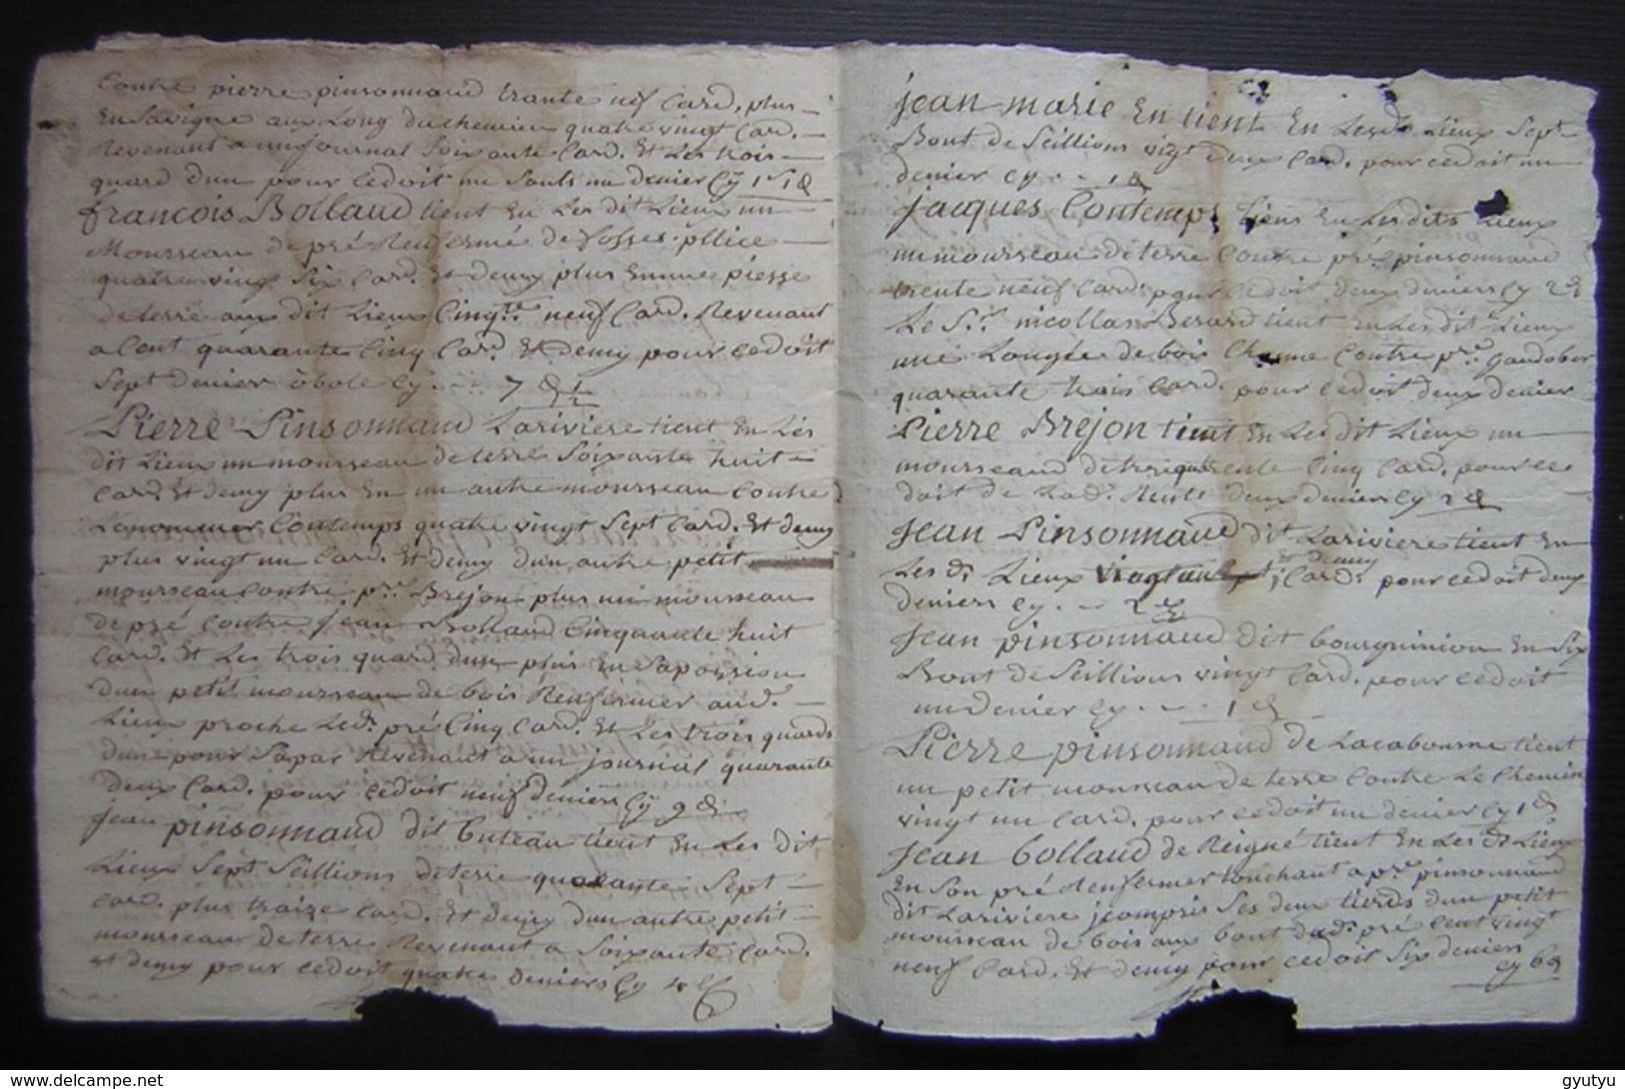 Contre pierre pinsonnaud trante neuf Card. plus
En Savigne aux Long du chemin quatre vingt Card.
Revenant a un Journal Soixante Card. Et Les trois
quard d'un pour cedoit un Souls un denier Cy 1s 1d
francois Bollaud tient En Les dit Lieux un
Mourseau de pré Renfermé de fosses pllice
quatre ving Six Card. Et demy plus En une piesse
de terre aux dit Lieux Cinqte neuf Card. Revenant
a Cent quarante Cinq Card. Et demy pour cedoit
Sept denier obole Cy . . . 7 d ½
Pierre Pinsonnaud Lariviere tient En Les
dit Lieux un mourseau de terre Soixante huit
Card. Et demy plus En un autre mourseau Contre
Le nommer Contemps quatre vingt Sept Card. Et demy
plus vingt un Card. Et demy dun autre petit
mourseau Contre pre. Brejon plus un mourseau
de pré Contre Jean Bollaud Cinquante huit
Card. Et Les trois quard dun plus En Sa poission
dun petit mourseau de bois Renfermer aud.
Lieux proche Led. pré Cinq Card. Et Les trois quards
dun pour Sapar Revenant a un journal quarante
deux Card. pour cedoit neuf deniers Cy 9 d
jean pinsonnaud dit buteau tient En Les dit
Lieux Sept Seillions de terre quarante Sept
Card. plus traize Card. Et demy dun autre petit
mourseau de terre Revenant a Soixante Card.
et demy pour cedoit quatre deniers Cy 4 d
jean marie En tient En Lesd. Lieux Sept
Bout de Seillions vigt deux Card. pour cedoit un
denier cy . . 1 d
Jacques Contemps tiens En Les dits Lieux
un mourseau de terre Contre pre pinsonnaud
trente neuf Card. pour cedoit deux deniers Cy 2 d
Le Sr. nicollas Berard tient En Les dit Lieux
une Longée de bois Contre pre. Gaudober
quarante trois Card. pour cedoit deux denier
Pierre Brejon tient En Les dit Lieux un
mourseaud de Cinq Card. pour ce
doit de Lad. Rente deux deniers Cy 2 d
Jean Pinsonnaud dit Lariviere tient En
et demy
Les d. Lieux Card. pour cedoit deux
deniers Cy . . 2 d
Jean pinsonnaud dit bourguinion En Six
Bout de Seillions vingt Card. pour cedoit
un Denier Cy . . . 1 d
Pierre pinsonnaud de Lacabourne tient
un petit mourseau de terre Contre Le Chemin
vingt un Card. pour cedoit un denier Cy 1 d
Jean bollaud de Reigné tient En Les d. Lieux
En Son pré Renfermer touchant a pre. pinsonnaud
dit Lariviere j compris Ses deux tierds dun petit
mourseau de bois aux bout dud. pré Cent vingt
neuf Card. Et demy pour cedoit Six deniers
Cy 6 d
© www.delcampe.net
gyutyu